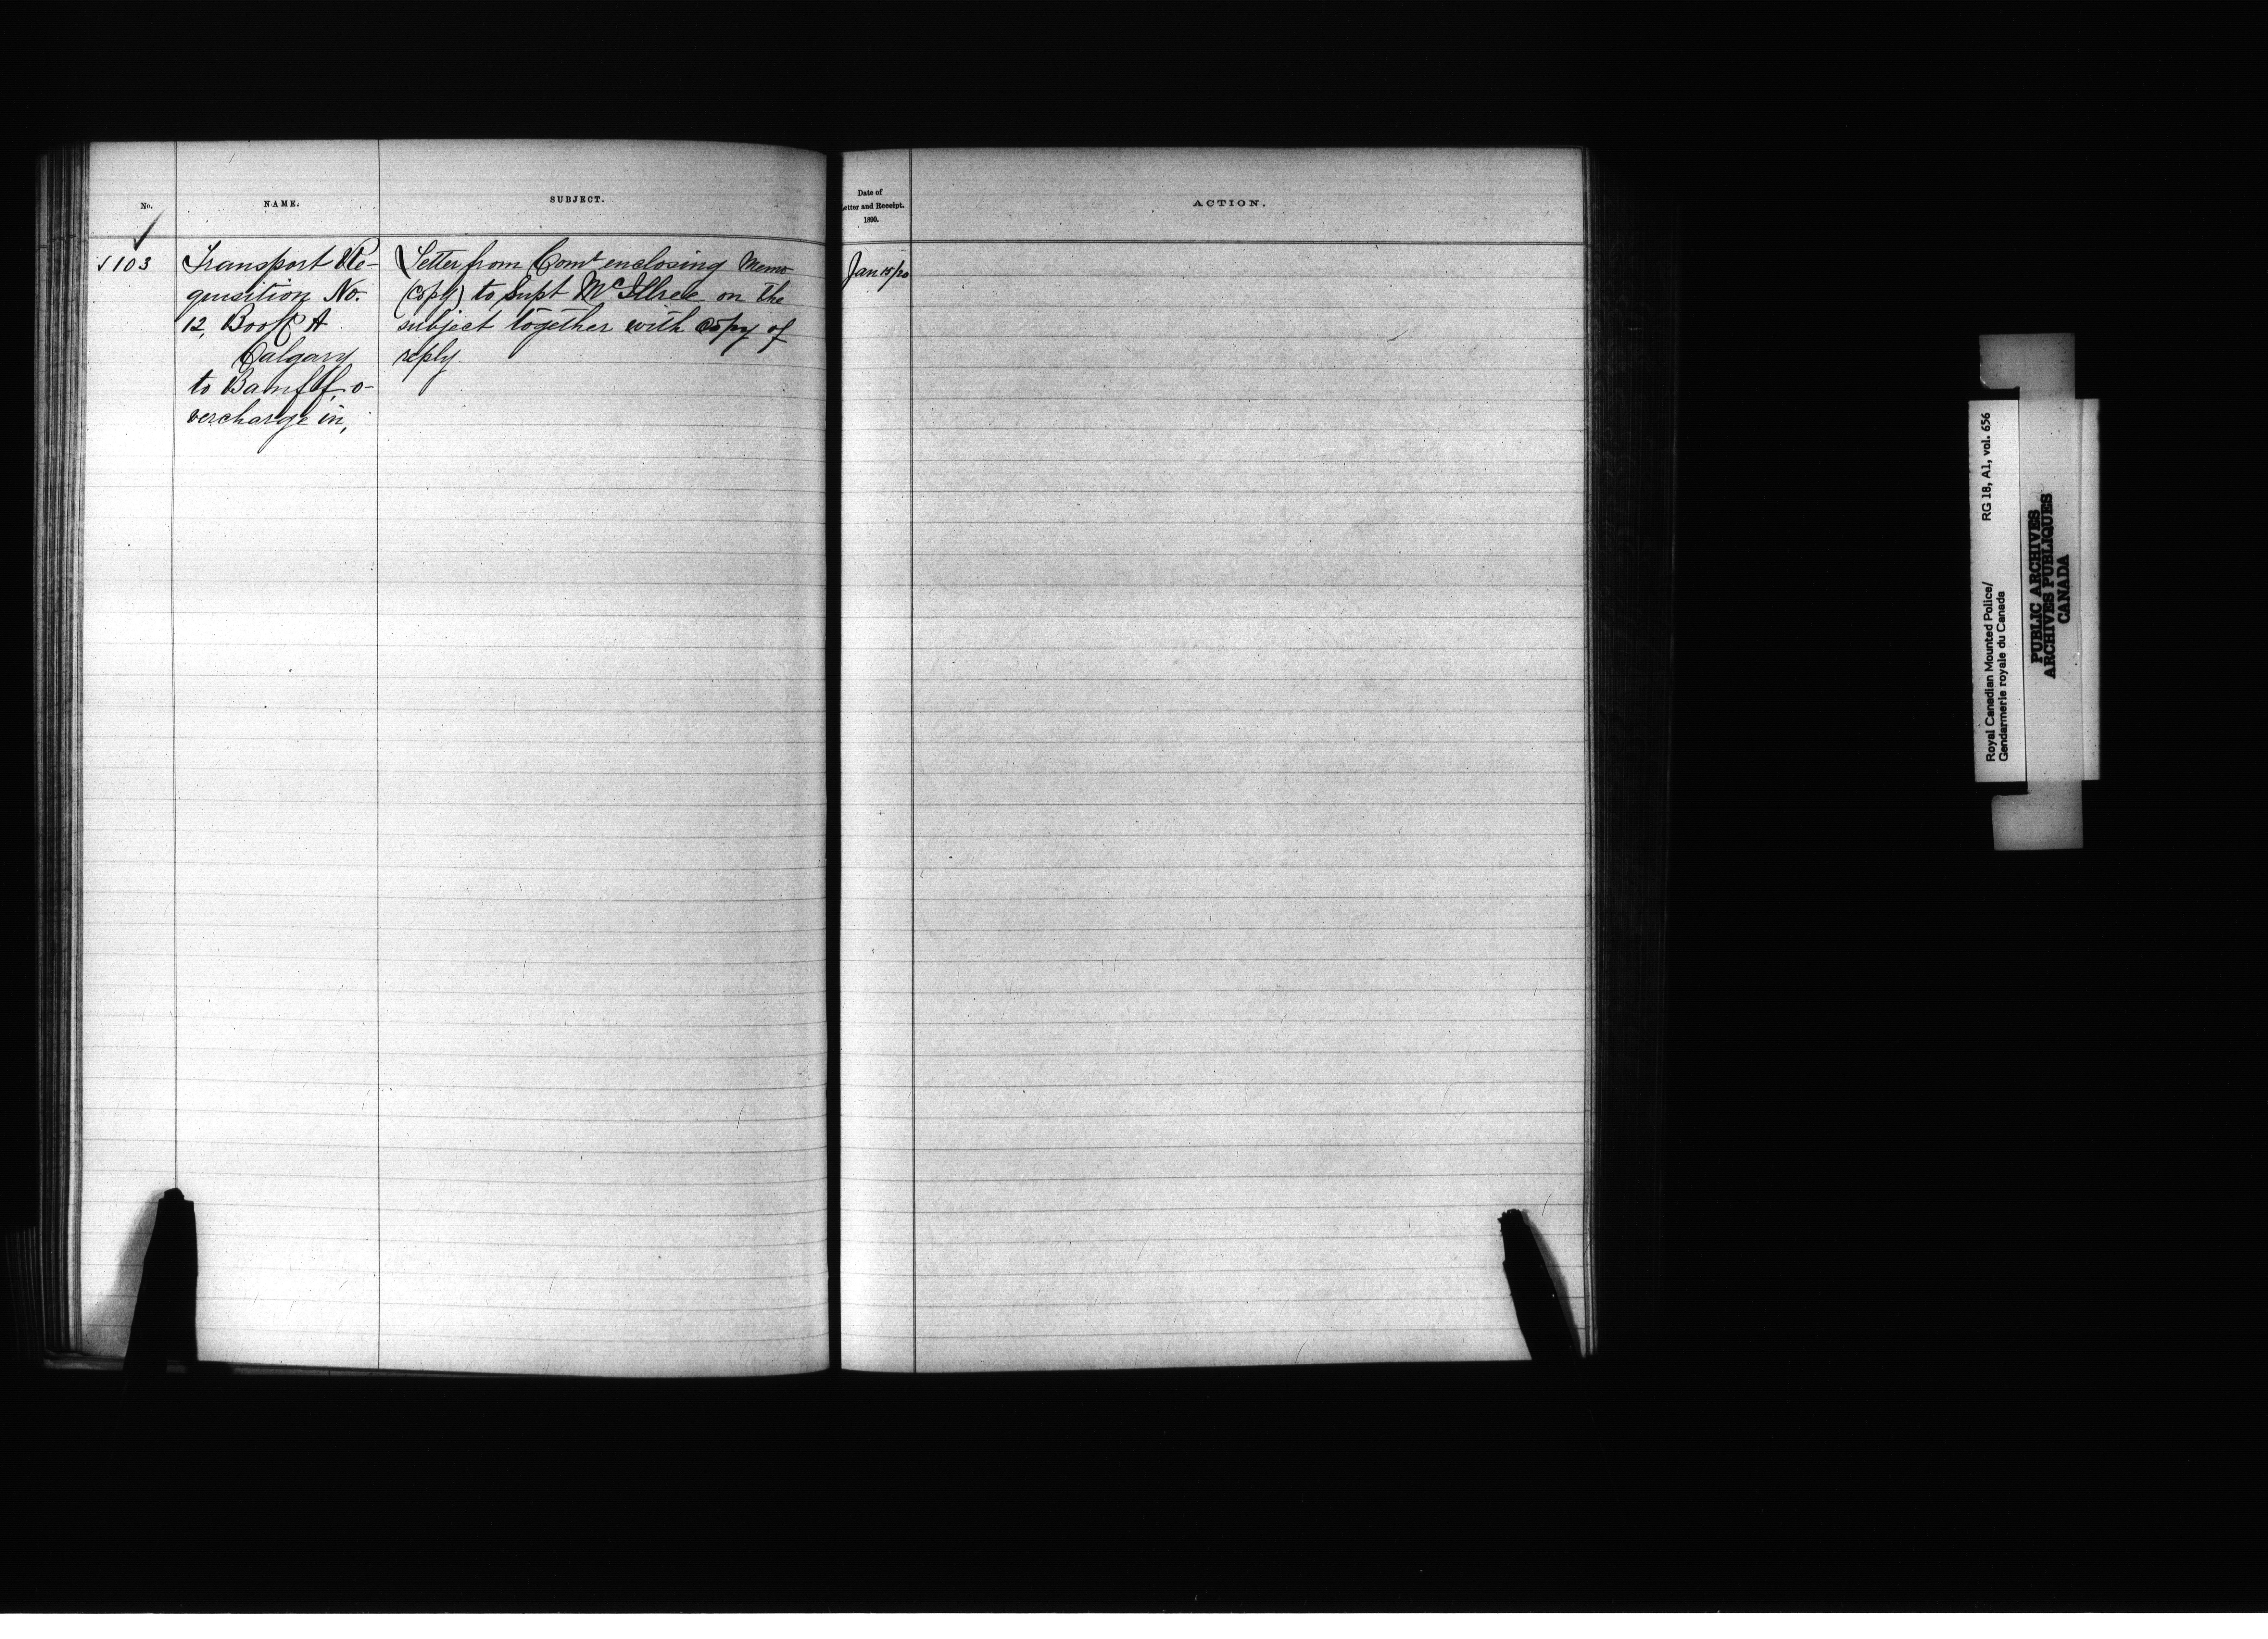 No.
NAME.
SUBJECT.
Date of
Letter and Receipt.
1890.
ACTION.
✓
✓ 103
Transport Re-
quisition No.
12, Book A
Calgary
to Banff, o-
vercharge in,
Letter from Comr enclosing Memo
(copy) to Supt McIllree on the
subject together with copy of
reply
Jan 15/20
Royal Canadian Mounted Police/ RG 18, A1, vol. 656
Gendarmerie royale du Canada
PUBLIC ARCHIVES
ARCHIVES PUBLIQUES
CANADA